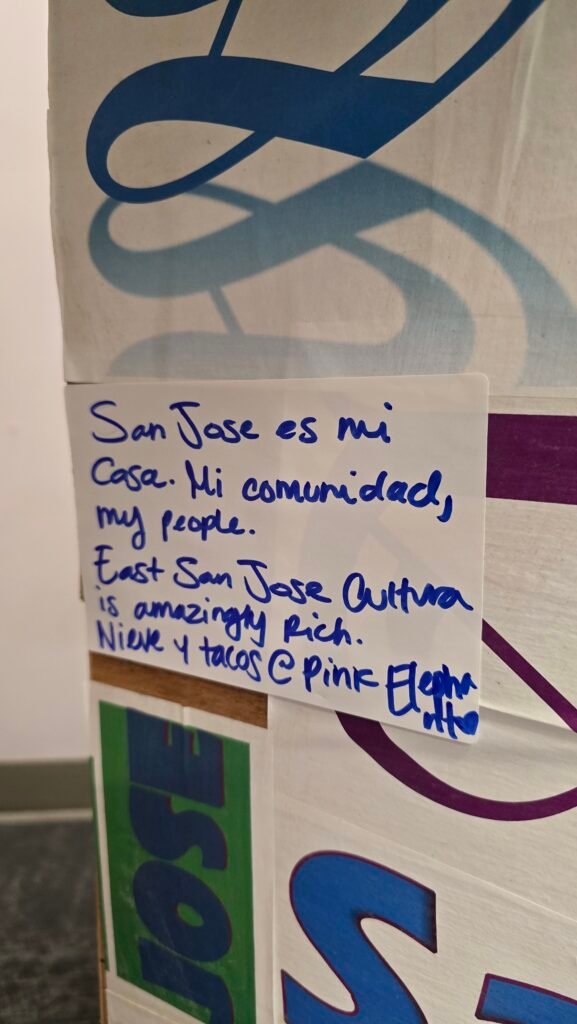 San Jose es mi
Casa. Mi comunidad,
my people.
East San Jose Cultura
is amazingly Rich.
Nieve y tacos @ Pink Elepha
nt
JOSE